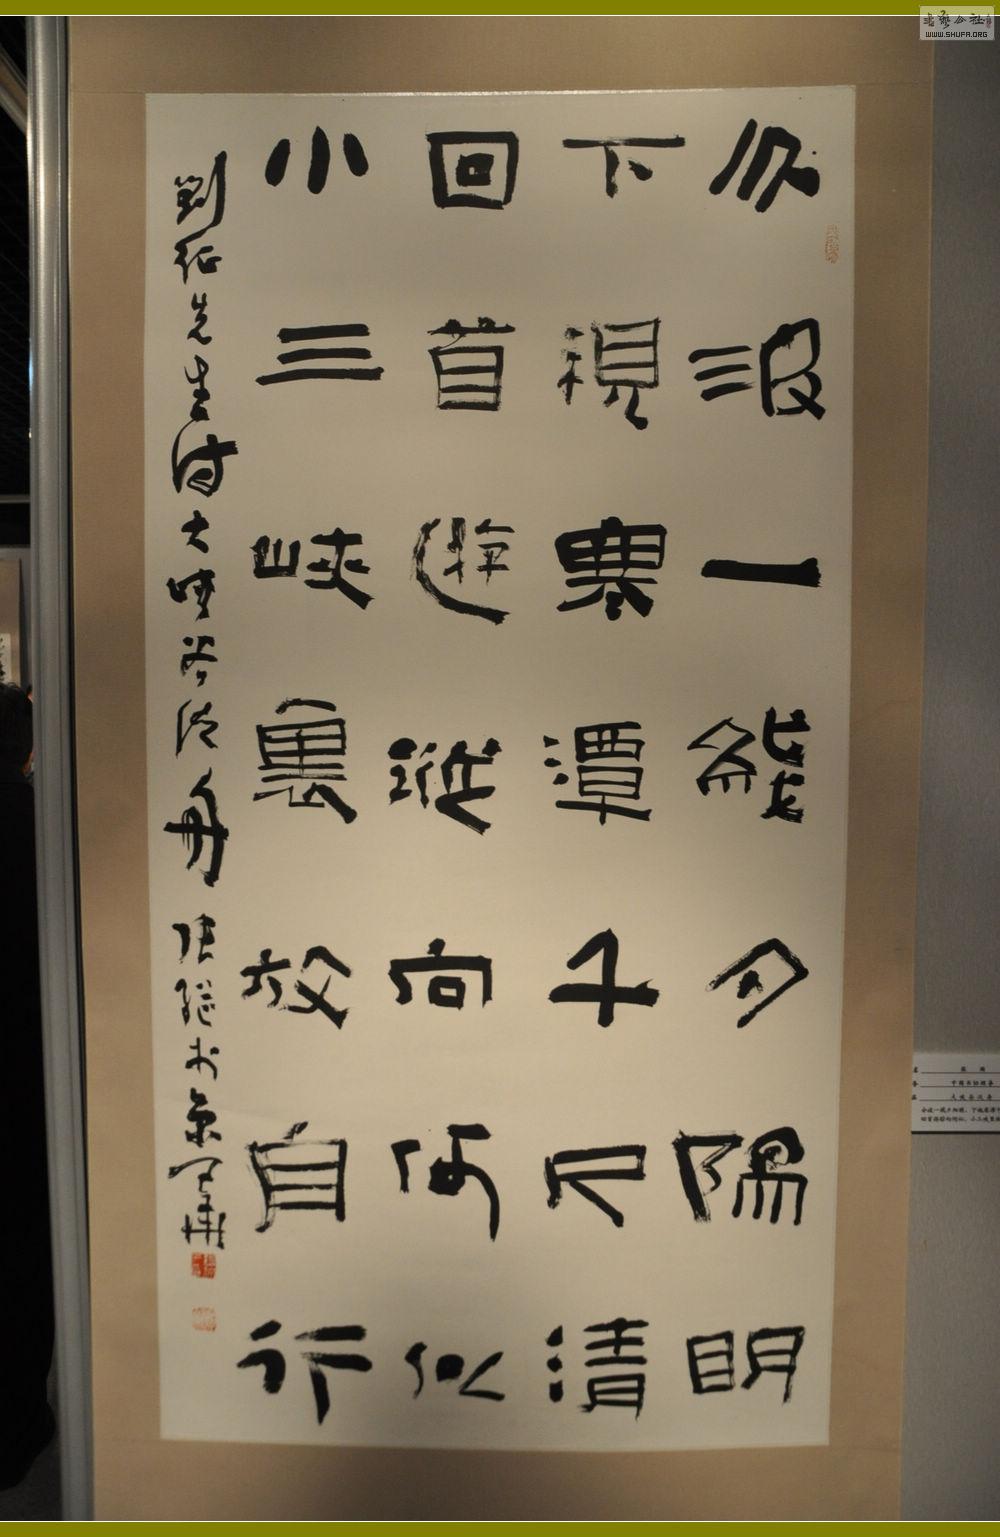 分波一夕陽明
下視寒潭千尺清
回首遊蹤向何似
小三峽裏放自行
劉征先生詩大峽谷泛舟 張繼於京
书艺公社
WWW.SHUFA.ORG